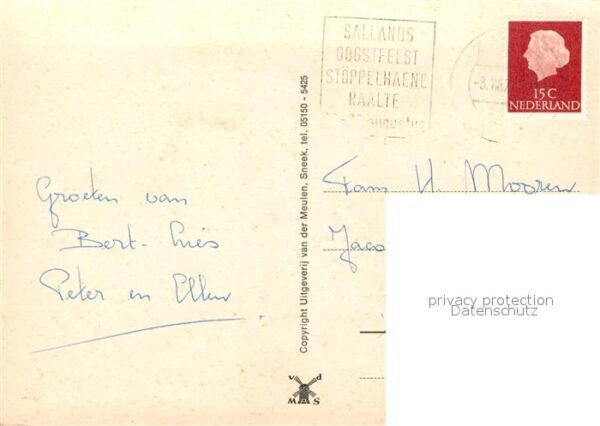 SALLANDS
OOGSTFEEST
STÖPPELHAENE
RAALTE
augustus
15 C
NEDERLAND
Groeten van
Bert - Lies
Peter en Ellen
Copyright Uitgeverij van der Meulen, Sneek, tel. 05150 - 5425
v d
M S
Fam H. Mooren
privacy protection
Datenschutz